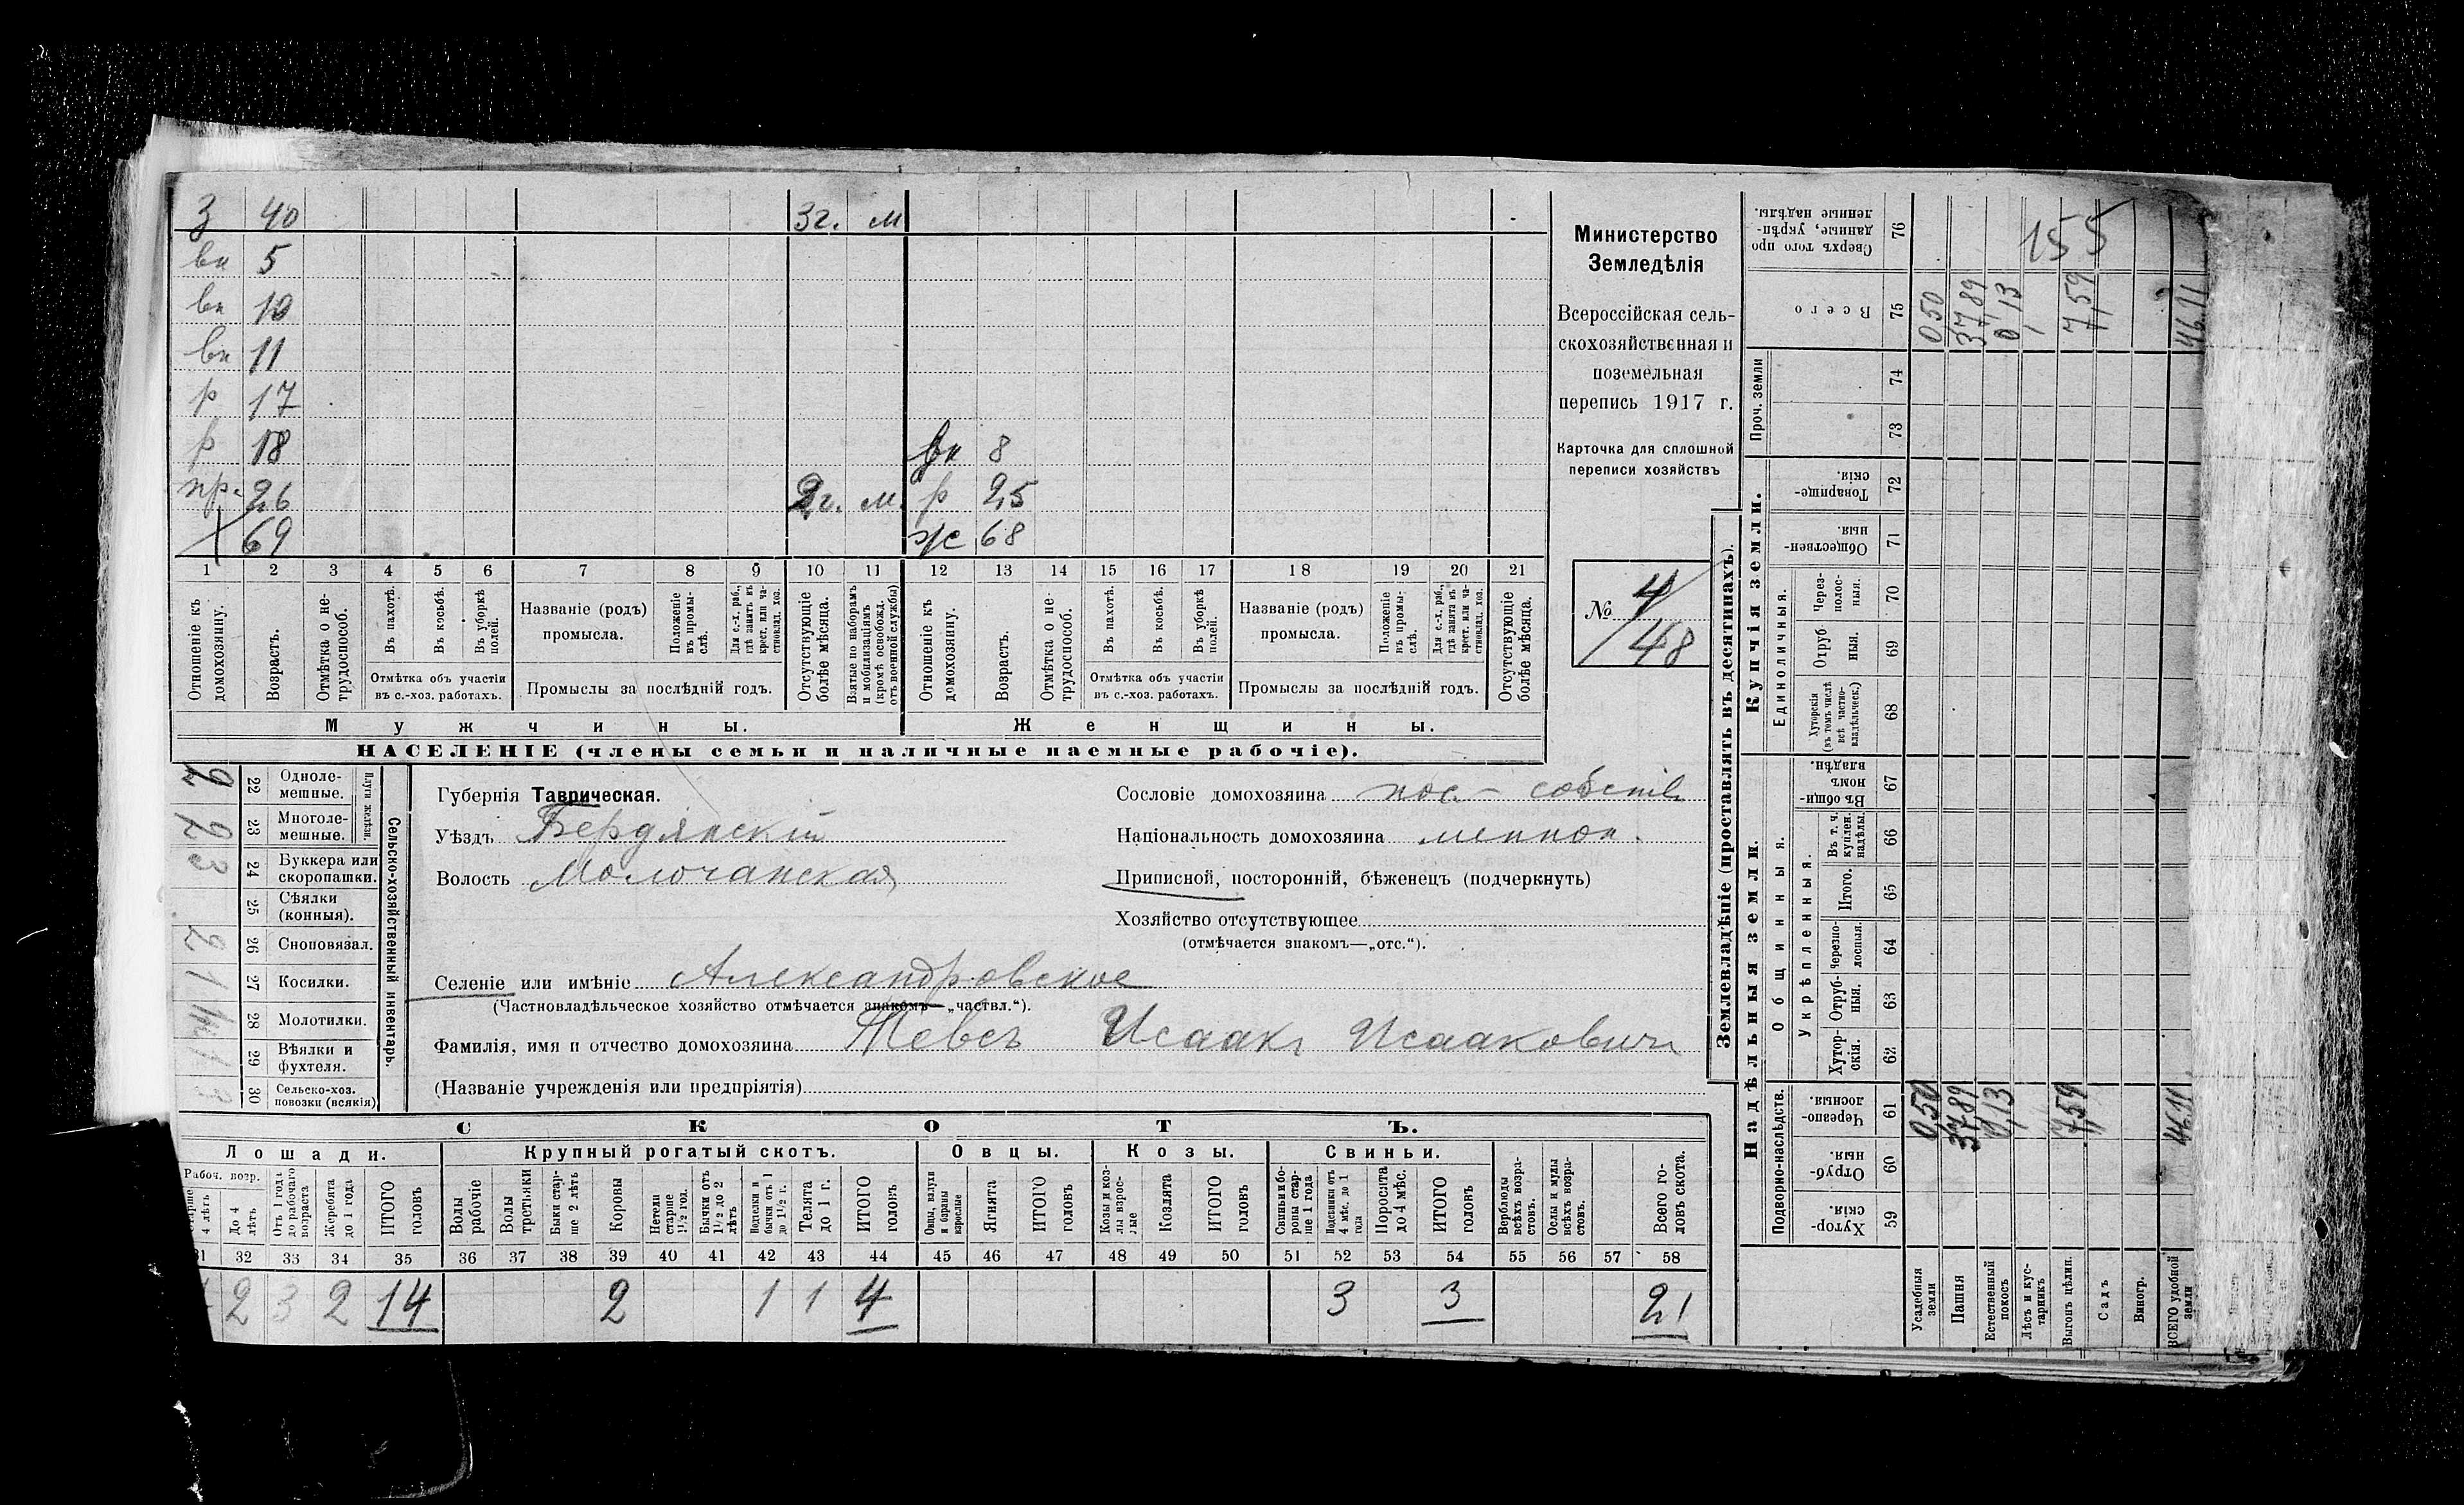 З 40 3г. м
вн 5
вн 10
вн 11
р 17
р 18 вн 8
пр. 26 2г. м. р 25
69 ж 68
1 2 3 4 5 6 7 8 9 10 11 12 13 14 15 16 17 18 19 20 21
Отношеніе къ домохозяину.
Возрастъ.
Отмѣтка о нетрудоспособ.
Въ пахотѣ.
Въ косьбѣ.
Въ уборкѣ полей.
Отмѣтка объ участіи
въ с.-хоз. работахъ.
Названіе (родъ)
промысла.
Положеніе въ промыслѣ.
Для с.-х. раб., где занятъ въ крест. или частновлад. хоз.
Промыслы за послѣдній годъ.
Отсутствующіе болѣе мѣсяца.
Взятые по наборамъ и мобилизаціямъ (кромѣ освобожд. отъ военной службы)
Отношеніе къ домохозяину.
Возрастъ.
Отмѣтка о нетрудоспособ.
Въ пахотѣ.
Въ косьбѣ.
Въ уборкѣ полей.
Отмѣтка объ участіи
въ с.-хоз. работахъ.
Названіе (родъ)
промысла.
Положеніе въ промыслѣ.
Для с.-х. раб., гдѣ занята въ крест. или частновлад. хоз.
Промыслы за послѣдній годъ.
Отсутствующіе болѣе мѣсяца.
Мужчины. Женщины.
НАСЕЛЕНІЕ (члены семьи и наличные наемные рабочіе).
Министерство
Земледѣлія
Всероссійская сель-
скохозяйственная и
поземельная
перепись 1917 г.
Карточка для сплошной
переписи хозяйствъ
№ 4/48
Сельско-хозяйственный инвентарь.
Плуги желѣзн.
2 22 Одноле-
мешные.
2 23 Многоле-
мешные.
3 24 Буккера или
скоропашки.
25 Сѣялки
(конныя).
2 26 Сноповязал.
1 27 Косилки.
28 Молотилки.
1 29 Вѣялки и
фухтеля.
3 30 Сельско-хоз.
повозки (всякія)
Губернія Таврическая.
Уѣздъ Бердянскій
Волость Молочанская
Сословіе домохозяина пос.- собств
Національность домохозяина меннон.
Приписной, посторонній, бѣженецъ (подчеркнуть)
Хозяйство отсутствующее
(отмѣчается знакомъ—„отс.“).
Селеніе или имѣніе Александровское
(Частновладѣльческое хозяйство отмѣчается знакомъ—„частвл.“).
Фамилія, имя и отчество домохозяина Тевсъ Исаакъ Исааковичъ
(Названіе учрежденія или предпріятія)
СКОТЪ.
Лошади. Крупный рогатый скотъ. Овцы. Козы. Свиньи.
Рабоч. возр.
Старше 4 лѣтъ
До 4 лѣтъ
Отъ 1 года до рабочаго возраста
Жеребята до 1 года
ИТОГО головъ
Волы рабочіе
Волы третьяки
Быки старше 2 лѣтъ
Коровы
Нетели старше 1½ год.
Бычки отъ 1½ до 2 лѣтъ
Подтелки и бычки отъ 1 до 1½ г.
Телята до 1 г.
ИТОГО головъ
Овцы, валухи и бараны взрослые
Ягнята
ИТОГО головъ
Козы и козлы взрослые
Козлята
ИТОГО головъ
Свиньи и бороны старше 1 года
Подсвинки отъ 4 мѣс. до 1 года
Поросята до 4 мѣс.
ИТОГО головъ
Верблюды всѣхъ возрастовъ.
Ослы и мулы всѣхъ возрастовъ.
Всего головъ скота.
31 32 33 34 35 36 37 38 39 40 41 42 43 44 45 46 47 48 49 50 51 52 53 54 55 56 57 58
2 3 2 14 2 1 1 4 3 3 21
Землевладѣніе (проставлять въ десятинахъ).
Надѣльныя земли. Купчія земли. Проч. земли
Подворно-наслѣдств. Общинныя. Единоличныя.
Укрѣпленныя.
Хуторскія. 59
Отрубныя. 60
Черезполосныя. 61 0,50 37,89 0,13 7,59 46,11
Хуторскія. 62
Отрубныя. 63
Черезполосныя. 64
Итого. 65
Въ т. ч. куплен. надѣлы. 66
Въ общинномъ владѣн. 67
Хуторскія (въ томъ числѣ всѣ частновладѣльческ.) 68
Отрубныя. 69
Черезполосныя. 70
Общественныя. 71
Товарищескія. 72
73
74
Всего 75 0,50 37,89 0,13 7,59 46,11
Сверхъ того проданные, укрѣпленные надѣлы. 76
155
Усадебныя земли
Пашня
Естественный покосъ
Лѣсъ и кустарникъ
Выгонъ цѣлин.
Садъ
Виногр.
ВСЕГО удобной земли